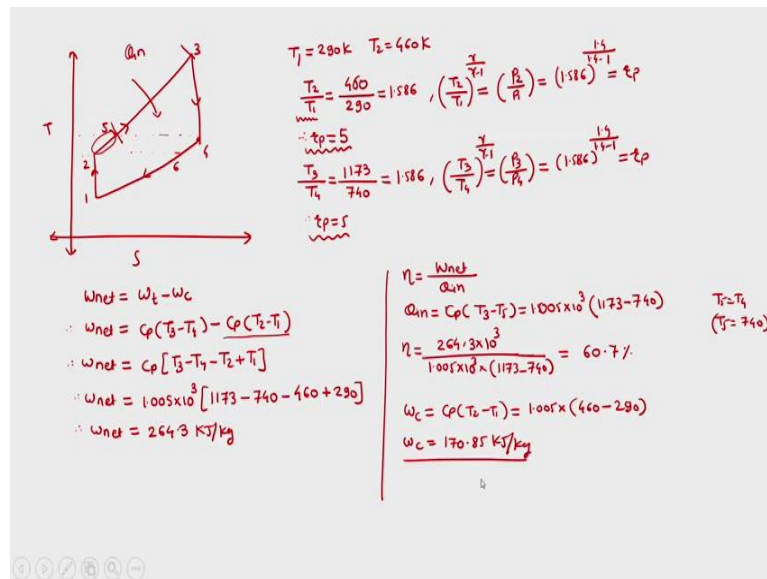 Qin
3
T
5
4
2
6
1
S
T₁ = 290K T₂ = 460K
T₂/T₁ = 460/290 = 1.586 , (T₂/T₁)^(γ/γ-1) = (P₂/P₁) = (1.586)^(1.4/1.4-1) = rp
∴ rp = 5
T₃/T₄ = 1173/740 = 1.586 , (T₃/T₄)^(γ/γ-1) = (P₃/P₄) = (1.586)^(1.4/1.4-1) = rp
∴ rp = 5
Wnet = Wt - Wc
∴ Wnet = Cp(T₃-T₄) - Cp(T₂-T₁)
∴ Wnet = Cp[T₃-T₄-T₂+T₁]
∴ Wnet = 1.005×10³[1173-740-460+290]
∴ Wnet = 264.3 KJ/kg
η = Wnet/Qin
Qin = Cp(T₃-T₅) = 1.005×10³(1173-740) T₅=T₄
(T₅=740)
η = 264.3×10³/1.005×10³×(1173-740) = 60.7%
Wc = Cp(T₂-T₁) = 1.005×(460-290)
Wc = 170.85 KJ/kg